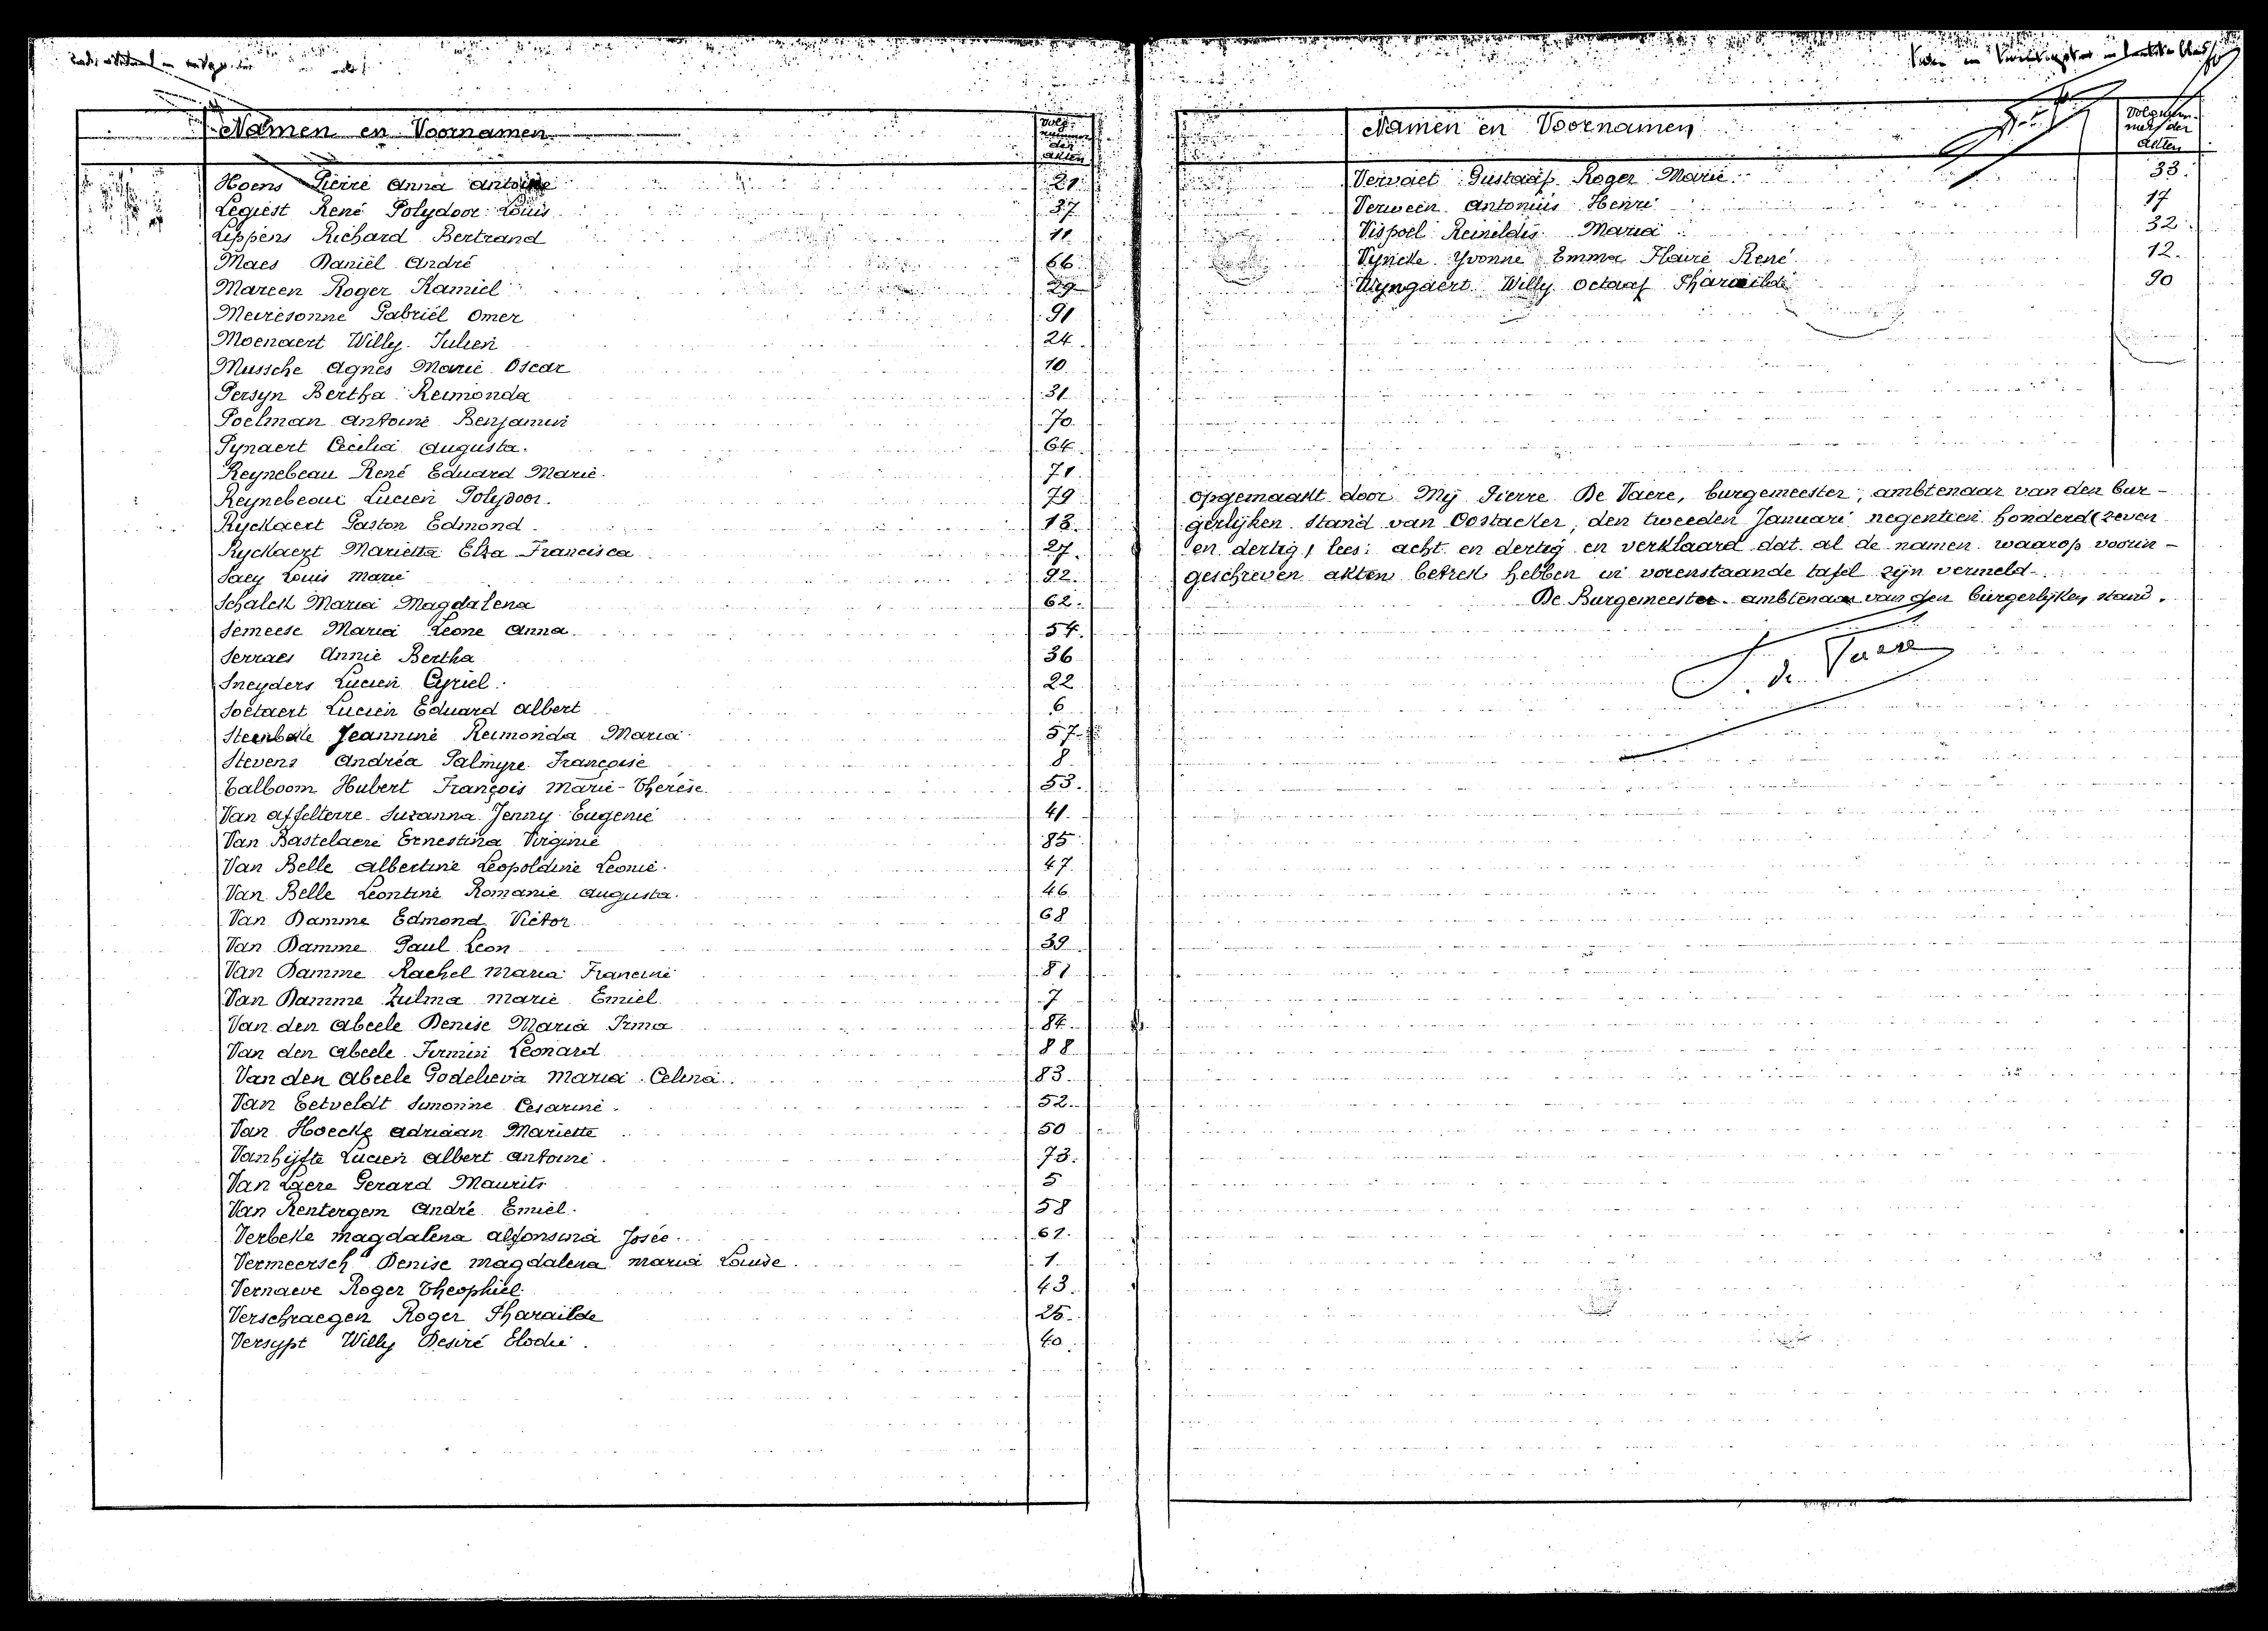 Namen en Voornamen
Volg nummer der akten
Hoens Pierre Anna Antoine 21
Legiest René Polydoor Louis 37
Lippens Richard Bertrand 11
Maes Daniël André 66
Mareen Roger Kamiel 29
Meiresonne Gabriël Omer 91
Moenaert Willy Julien 24
Mussche Agnès Marie Oscar 10
Persyn Bertha Reimonda 31
Poelman Antoine Benjamin 70
Pynaert Cecilia Augusta. 64
Reynebeau René Eduard Marie. 71
Reynebeau Lucien Polydoor. 79
Ryckaert Gaston Edmond. 13
Ryckaert Marietta Elza Francisca 27.
Saey Louis Marie 92.
Schalck Maria Magdalena 62.
Semeese Maria Leone Anna. 54.
Serraes Annie Bertha 36
Sneyders Lucien Cyriel. 22
Soetaert Lucien Eduard Albert 6
Steenbeke Jeannine Reimonda Maria 57
Stevens Andréa Palmyre Françoise 8
Talboom Hubert François Marie-Thérèse. 53.
Van Affelterre Suzanna Jenny Eugenie 41.
Van Bastelaere Ernestina Virginie 85
Van Belle Albertine Leopoldine Leonie. 47
Van Belle Leontine Romanie Augusta. 46
Van Damme Edmond Victor 68
Van Damme Paul Leon 39
Van Damme Rachel Maria Francine 81
Van Damme Zulma Marie Emiel 7
Van den Abeele Denise Maria Irma 84
Van den Abeele Firmin Leonard 88
Van den Abeele Godelieva Maria Celina. 83
Van Eetveldt Simonne Cesarine. 52
Van Hoecke Adriaan Mariette 50
Vanhijfte Lucien Albert Antoine. 73.
Van Laere Gerard Maurits 5
Van Rentergem André Emiel. 58
Verbeke Magdalena Alfonsina Josée. 61.
Vermeersch Denise Magdalena Maria Louise. 1
Vernaeve Roger Theophiel. 43
Verschraegen Roger Pharaïlde 25.
Versypt Willy Desiré Elodie. 40
Namen en Voornamen
Volgnummer der akten
Vervaet Gustaaf Roger Marie 33.
Verween Antonius Henri 17
Vispoel Reinildis Maria 32.
Vyncke Yvonne Emma Flavie René 12.
Wyngaert Willy Octaaf Pharaïlde 90
Opgemaakt door Mij Pierre De Vaere, burgemeester, ambtenaar van den bur-
gerlijken stand van Oostacker, den tweeden Januari negentien honderd (zeven
en dertig) lees: acht en dertig en verklaard dat al de namen waarop voorin-
geschreven akten betrek hebben in vorenstaande tafel zijn vermeld.
De Burgemeester. ambtenaar van den burgerlijken stand.
P. de Vaere